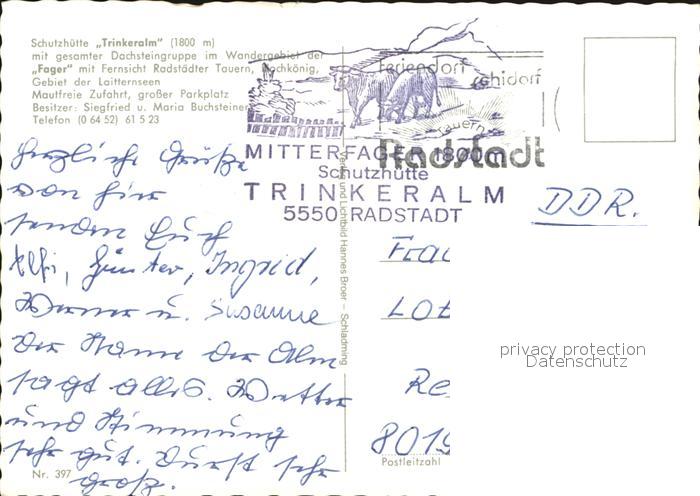 Schutzhütte „Trinkeralm" (1800 m)
mit gesamter Dachsteingruppe im Wandergebiet der
„Fager" mit Fernsicht Radstädter Tauern, Hochkönig,
Gebiet der Laitternseen
Mautfreie Zufahrt, großer Parkplatz
Besitzer: Siegfried u. Maria Buchsteiner
Telefon (0 64 52) 61 5 23
Feriendorf
Schidorf
Tauern
Radstadt
MITTERFAGER 1800m
Schutzhütte
TRINKERALM
5550 RADSTADT
Herzliche Grüße
von hier
senden Euch
Elfi, Günter, Ingrid,
Werner u. Susanne
Der Name der Alm
sagt alles. Wetter
und Stimmung
sehr gut. Durst sehr
groß.
Nr. 397
Verlag und Lichtbild Hannes Broer – Schladming
DDR.
Frau
Lot
Re
8019
Postleitzahl
privacy protection
Datenschutz